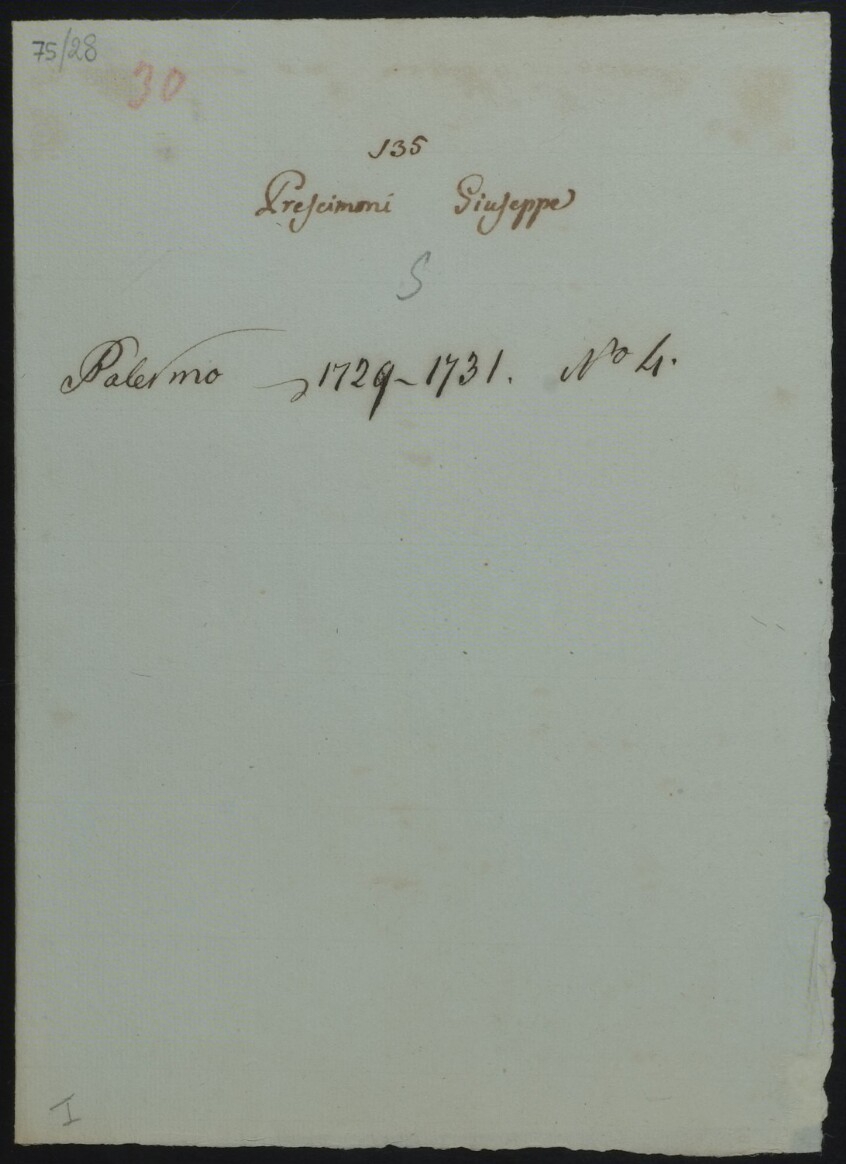 75/28
30
135
Prescimoni Giuseppe
S
Palermo 1729-1731. No 4.
I